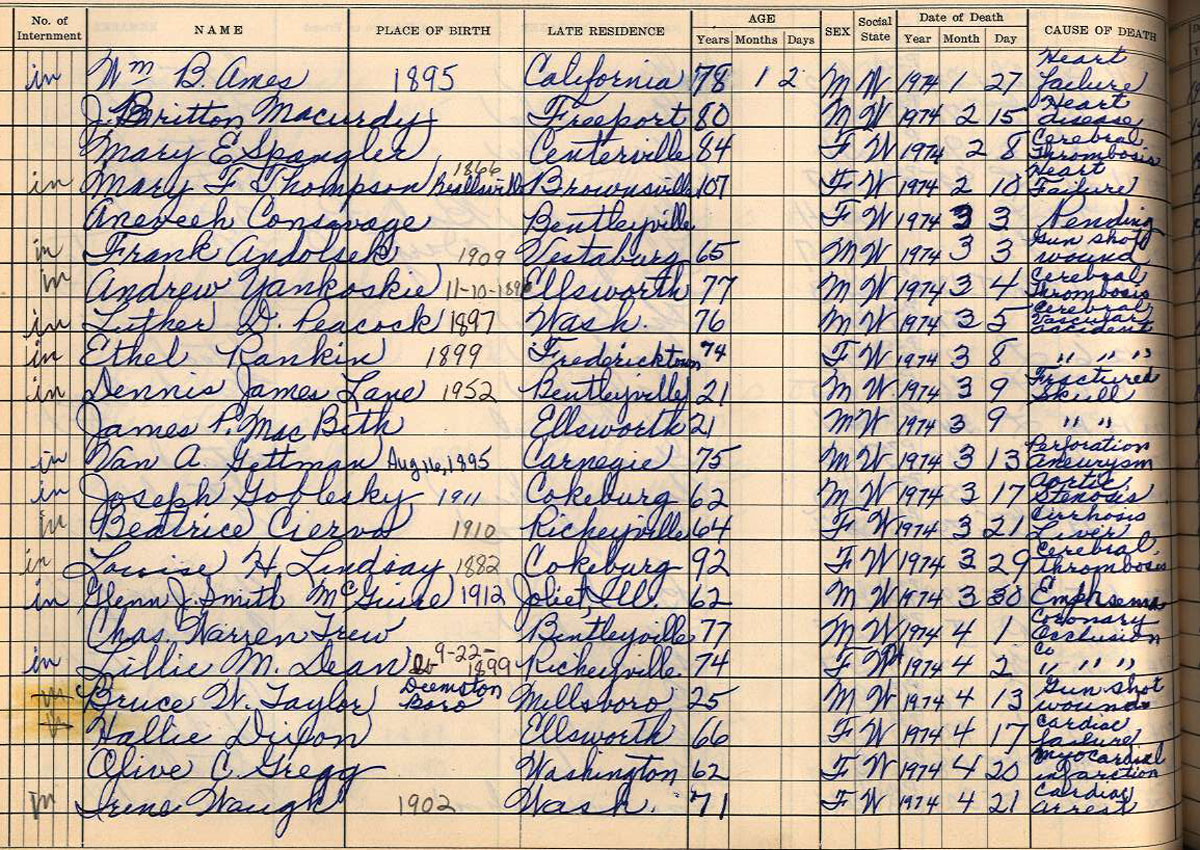 No. of Internment NAME PLACE OF BIRTH LATE RESIDENCE AGE Years Months Days SEX Social State Date of Death Year Month Day CAUSE OF DEATH
in Wm B. Ames 1895 California 78 1 2 M W 1974 1 27 Heart Failure
J. Britton Macurdy Freeport 80 M W 1974 2 15 Heart disease
Mary E Spangler Centerville 84 F W 1974 2 8 Cerebral Thrombosis
in Mary F Thompson 1866 Beallsville Brownsville 107 F W 1974 2 10 Heart Failure
Consavage Bentleyville F W 1974 3 3 Pending
in Frank Andolsek 1909 Vestaburg 65 M W 1974 3 3 Gun shot wound
in Andrew Yankoskie 11-10-1896 Ellsworth 77 M W 1974 3 4 Cerebral Thrombosis
in Luther D. Peacock 1897 Wash. 76 M W 1974 3 5 Cerebral Vascular accident
in Ethel Rankin 1899 Fredericktown 74 F W 1974 3 8 " " "
in Dennis James Lane 1952 Bentleyville 21 M W 1974 3 9 Fractured Skull
James P. Mac Bith Ellsworth 21 M W 1974 3 9 " "
in Van A. Gettman Aug 16, 1895 Carnegie 75 M W 1974 3 13 Perforation Aneurysm
in Joseph Goblesky 1911 Cokeburg 62 M W 1974 3 17 Aortic Stenosis
in Beatrice Ciervo 1910 Richeyville 64 F W 1974 3 21 Cirrhosis Liver
in Louise H. Lindsay 1882 Cokeburg 92 F W 1974 3 29 Cerebral Thrombosis
in Glenn J. Smith McGuire 1912 Joliet, Ill. 62 M W 1974 3 30 Emphsema
Chas. Warren Trew Bentleyville 77 M W 1974 4 1 Coronary Occlusion
in Lillie M. Dean 9-22-1899 Richeyville 74 F W 1974 4 2 Co " " "
in Bruce W. Taylor Deemston Boro Millsboro 25 M W 1974 4 13 Gun shot wounds
in Hallie Dixon Ellsworth 66 F W 1974 4 17 Cardiac failure
Olive C. Gregg Washington 62 F W 1974 4 20 Myocardial infarction
in Irene Waugh 1902 Wash. 71 F W 1974 4 21 Cardiac arrest